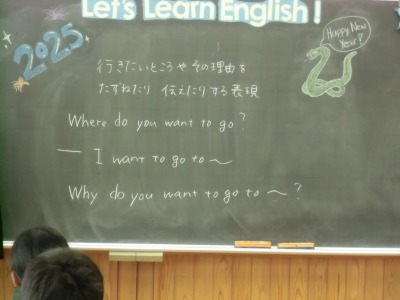 Let's Learn English!
2025
Happy New
Year!!
行きたいところやその理由を
たずねたり 伝えたりする表現
Where do you want to go?
— I want to go to 〜
Why do you want to go to 〜?